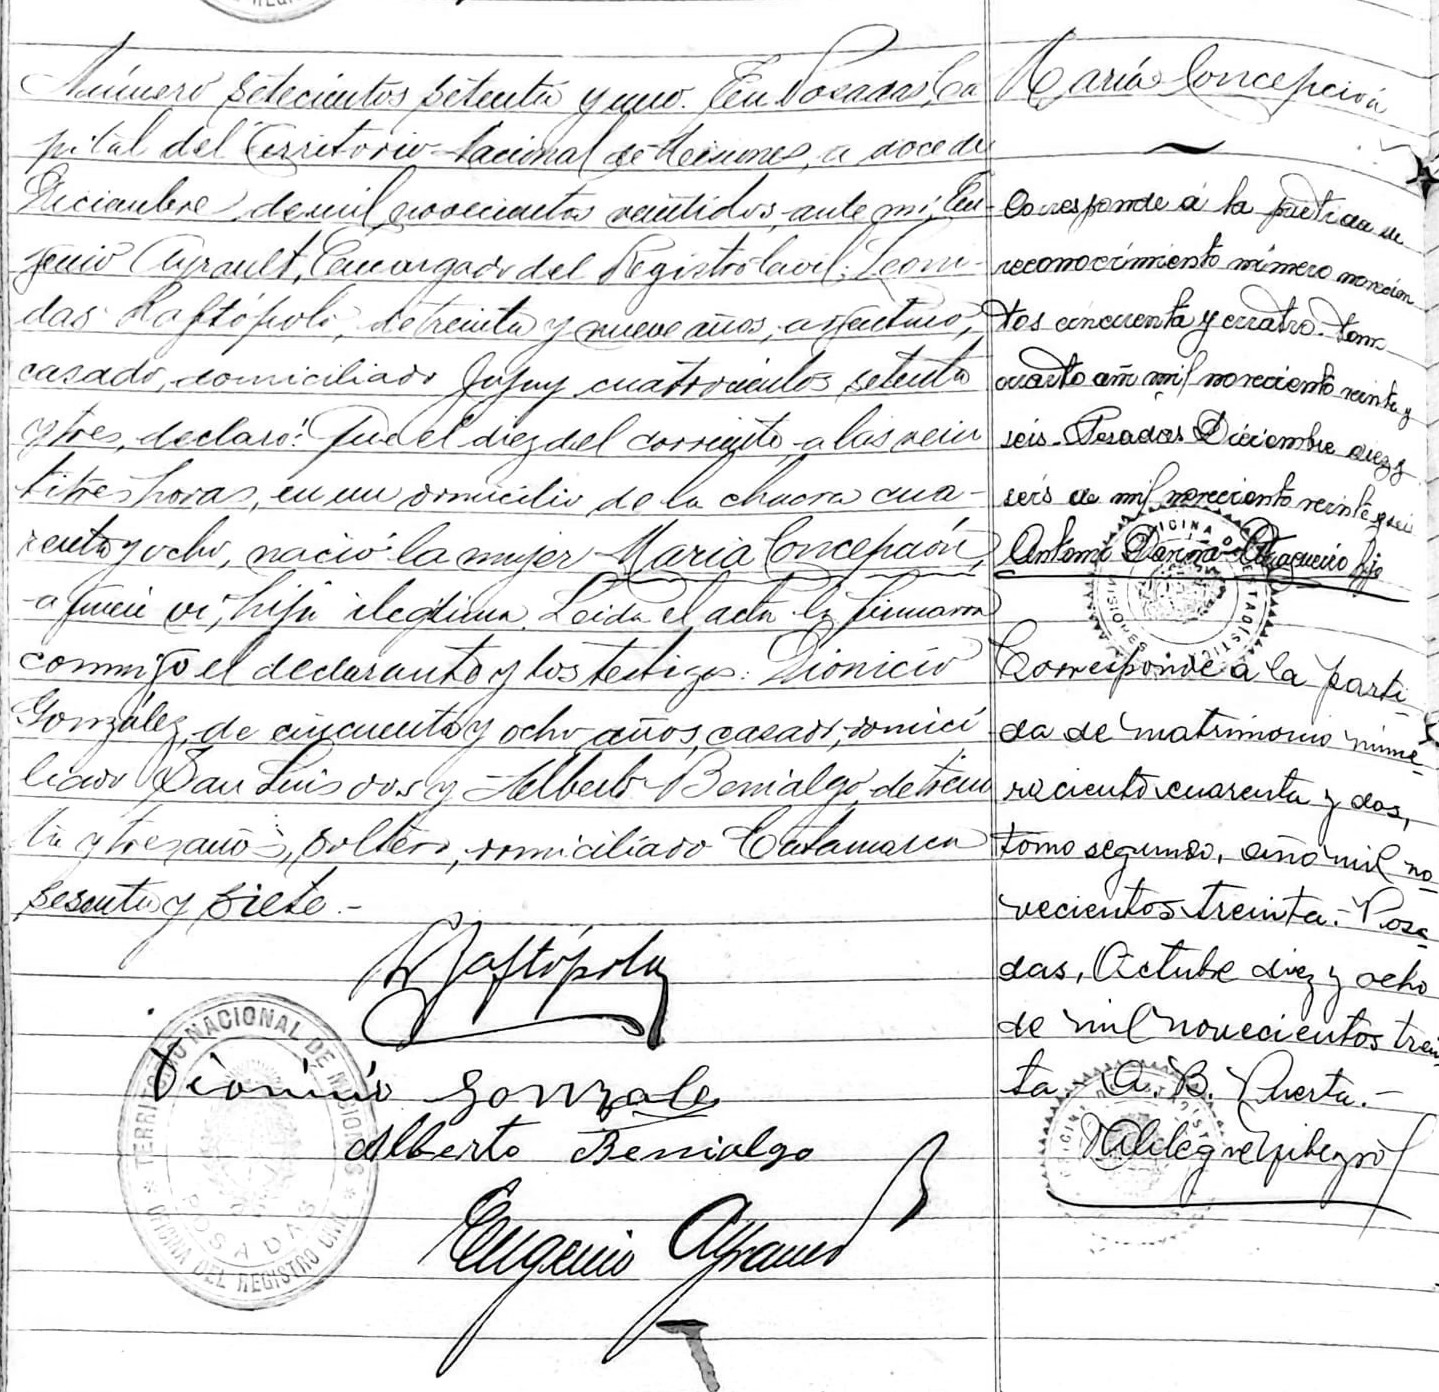 Número setecientos setenta y uno. En Posadas, Ca
pital del Territorio Nacional de Misiones, a doce de
Diciembre de mil novecientos veintidos, ante mí, Eu-
genio Ayrault, Encargado del Registro Civil: Leoni-
das Raftópolo, de treinta y nueve años, argentino,
casado, domiciliado Jujuy cuatrocientos setenta
y tres, declaró: Que el diez del corriente a las vein
titres horas, en un domicilio de la chacra cua-
renta y ocho, nació la mujer María Concepción,
a quien vi, hija ilegítima. Leida el acta la firmaron
conmigo el declarante y los testigos: Dionicio
González, de cincuenta y ocho años, casado, domici
liado San Luis dos y Alberto Benialgo, de trein
ta y tres años, soltero, domiciliado Catamarca
sesenta y siete.-
Raftópolo
Dionicio Gonzale
Alberto Benialgo
Eugenio Ayrault
TERRITORIO NACIONAL DE MISIONES
POSADAS
OFICINA DEL REGISTRO CIVIL
María Concepción
Corresponde á la partida de
reconocimiento número novecien
tos cincuenta y cuatro. tomo
cuarto año mil noveciento veinte y
seis. Posadas Diciembre diez y
seis de mil noveciento veinte y seis
Antonio
hijo
OFICINA DE ESTADISTICA
MISIONES
Corresponde á la parti-
da de matrimonio núme-
ro ciento cuarenta y dos,
tomo segundo, año mil no-
vecientos treinta.- Posa-
das, Octubre diez y ocho
de mil novecientos trein-
ta A. B. Puerta.-